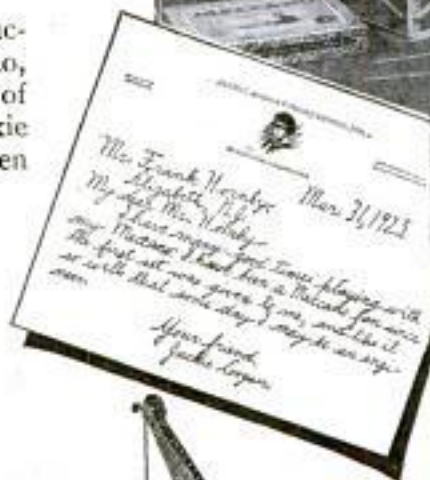 uc-
o,
of
kie
en
Mar. 31, 1923
Mr. Frank Hornby,
Elizabeth, N.J.
My dear Mr. Hornby-
I have many good times playing with
my Meccano. I have been a Meccano fan since
the first set was given to me, and like it
so with that some day I may be an engi-
neer.
Your friend,
Jackie